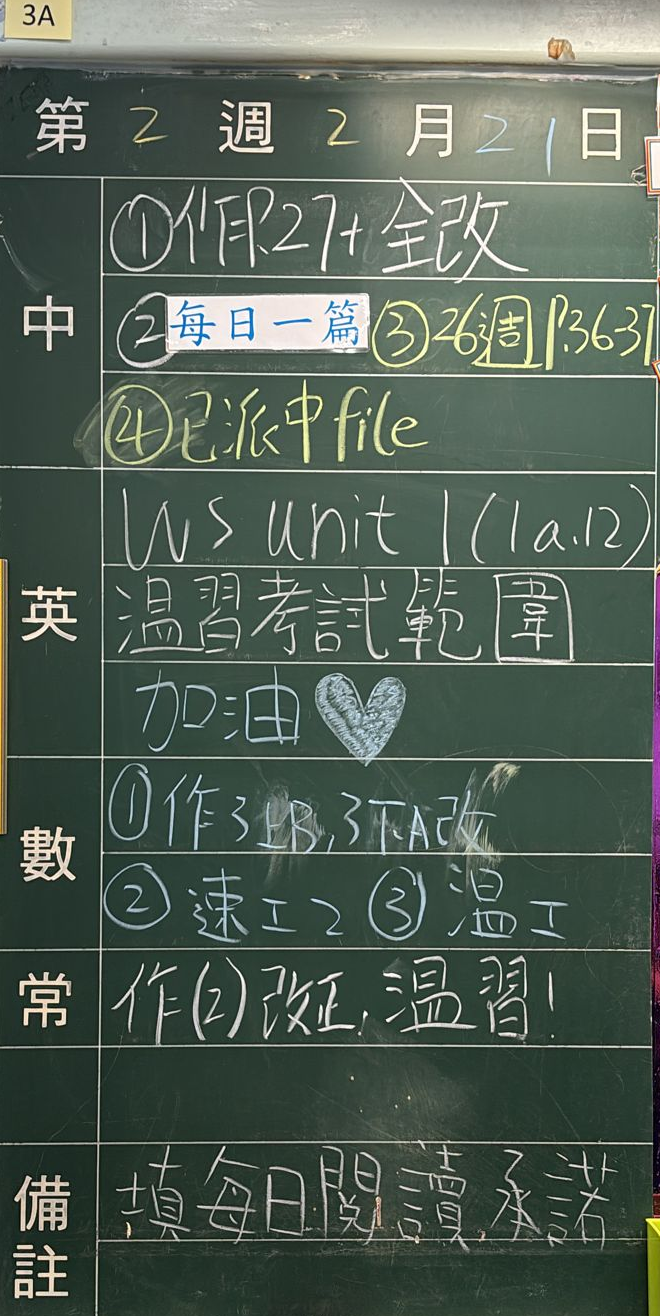 3A
第 2 週 2 月 21 日
中
①作P.27+全改
②每日一篇 ③26週P.36-37
④已派中file
英
WS unit 1 (1a.12)
温習考試範圍
加油
數
①作3上B,3下A改
②速工2 ③温工
常
作(2)改正,温習!
備註
填每日閱讀承諾